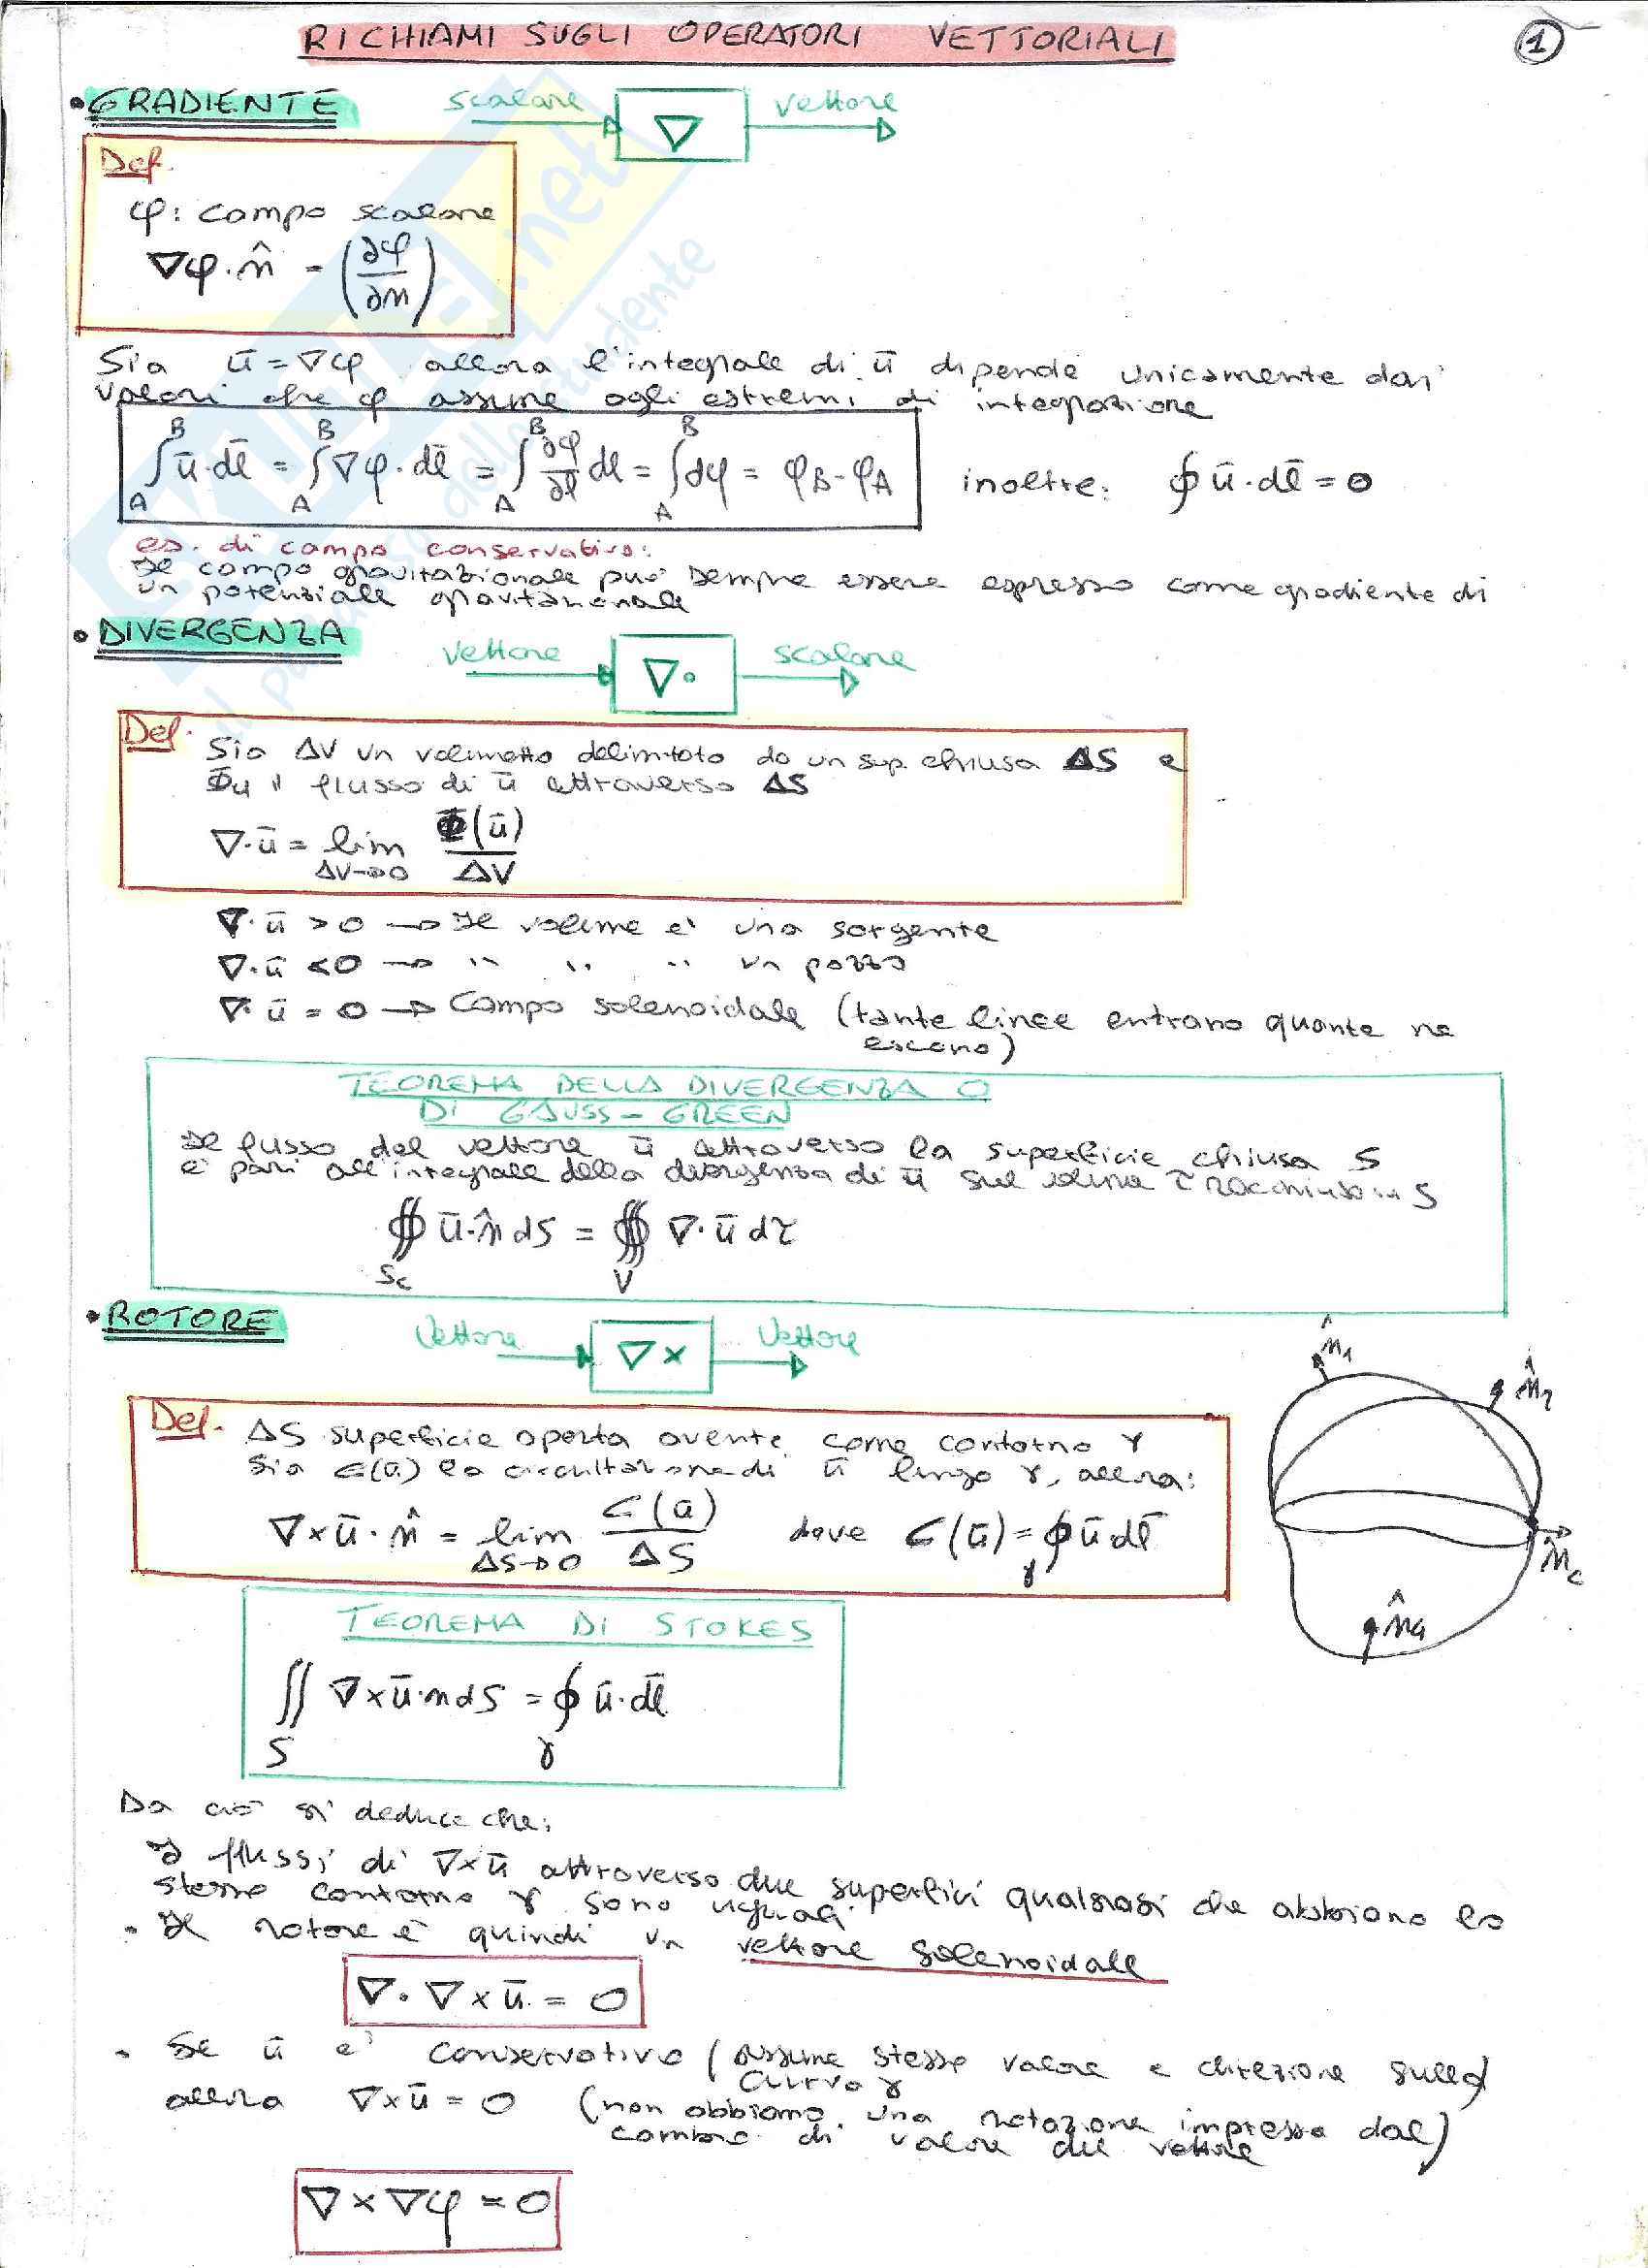 RICHIAMI SUGLI OPERATORI VETTORIALI
1
• GRADIENTE
scalare ∇ vettore
Def.
φ: campo scalare
∇φ·n̂ = (∂φ/∂n)
Sia ū = ∇φ allora l'integrale di ū dipende unicamente dai
valori che φ assume agli estremi di integrazione
∫_A^B ū·dl̄ = ∫_A^B ∇φ·dl̄ = ∫_A^B ∂φ/∂l dl = ∫_A^B dφ = φ_B - φ_A inoltre: ∮ ū·dl̄ = 0
es. di campo conservativo:
Il campo gravitazionale può sempre essere espresso come gradiente di
un potenziale gravitazionale
• DIVERGENZA
vettore ∇· scalare
Def.
Sia ΔV un volumetto delimitato da un sup. chiusa ΔS e
Φu il flusso di ū attraverso ΔS
∇·ū = lim_{ΔV→0} Φ(ū)/ΔV
∇·ū > 0 → Il volume e' una sorgente
∇·ū < 0 → " " " un pozzo
∇·ū = 0 → Campo solenoidale (tante linee entrano quante ne
escono)
TEOREMA DELLA DIVERGENZA O
DI GAUSS - GREEN
Il flusso del vettore ū attraverso la superficie chiusa S
e' pari all'integrale della divergenza di ū sul τ racchiuso in S
∯_{Sc} ū·n̂ dS = ∰_V ∇·ū dτ
• ROTORE
Vettore ∇× Vettore
Def. ΔS superficie aperta avente come contorno γ
Sia C(ū) la circuitazione di ū lungo γ, allora:
∇×ū·n̂ = lim_{ΔS→0} C(ū)/ΔS dove C(ū) = ∮_γ ū dl̄
n̂₁
n̂₂
n̂c
n̂₄
TEOREMA DI STOKES
∬_S ∇×ū·n dS = ∮_γ ū·dl̄
Da ciò si deduce che:
I flussi di ∇×ū attraverso due superfici qualsiasi che abbiano lo
stesso contorno γ sono uguali
• Il rotore è quindi un vettore solenoidale
∇·∇×ū = 0
• Se ū e' conservativo (assume stesso valore e direzione sulla
curva γ)
allora ∇×ū = 0 (non abbiamo una rotazione impressa dal
cambio di valore del vettore)
∇×∇φ = 0